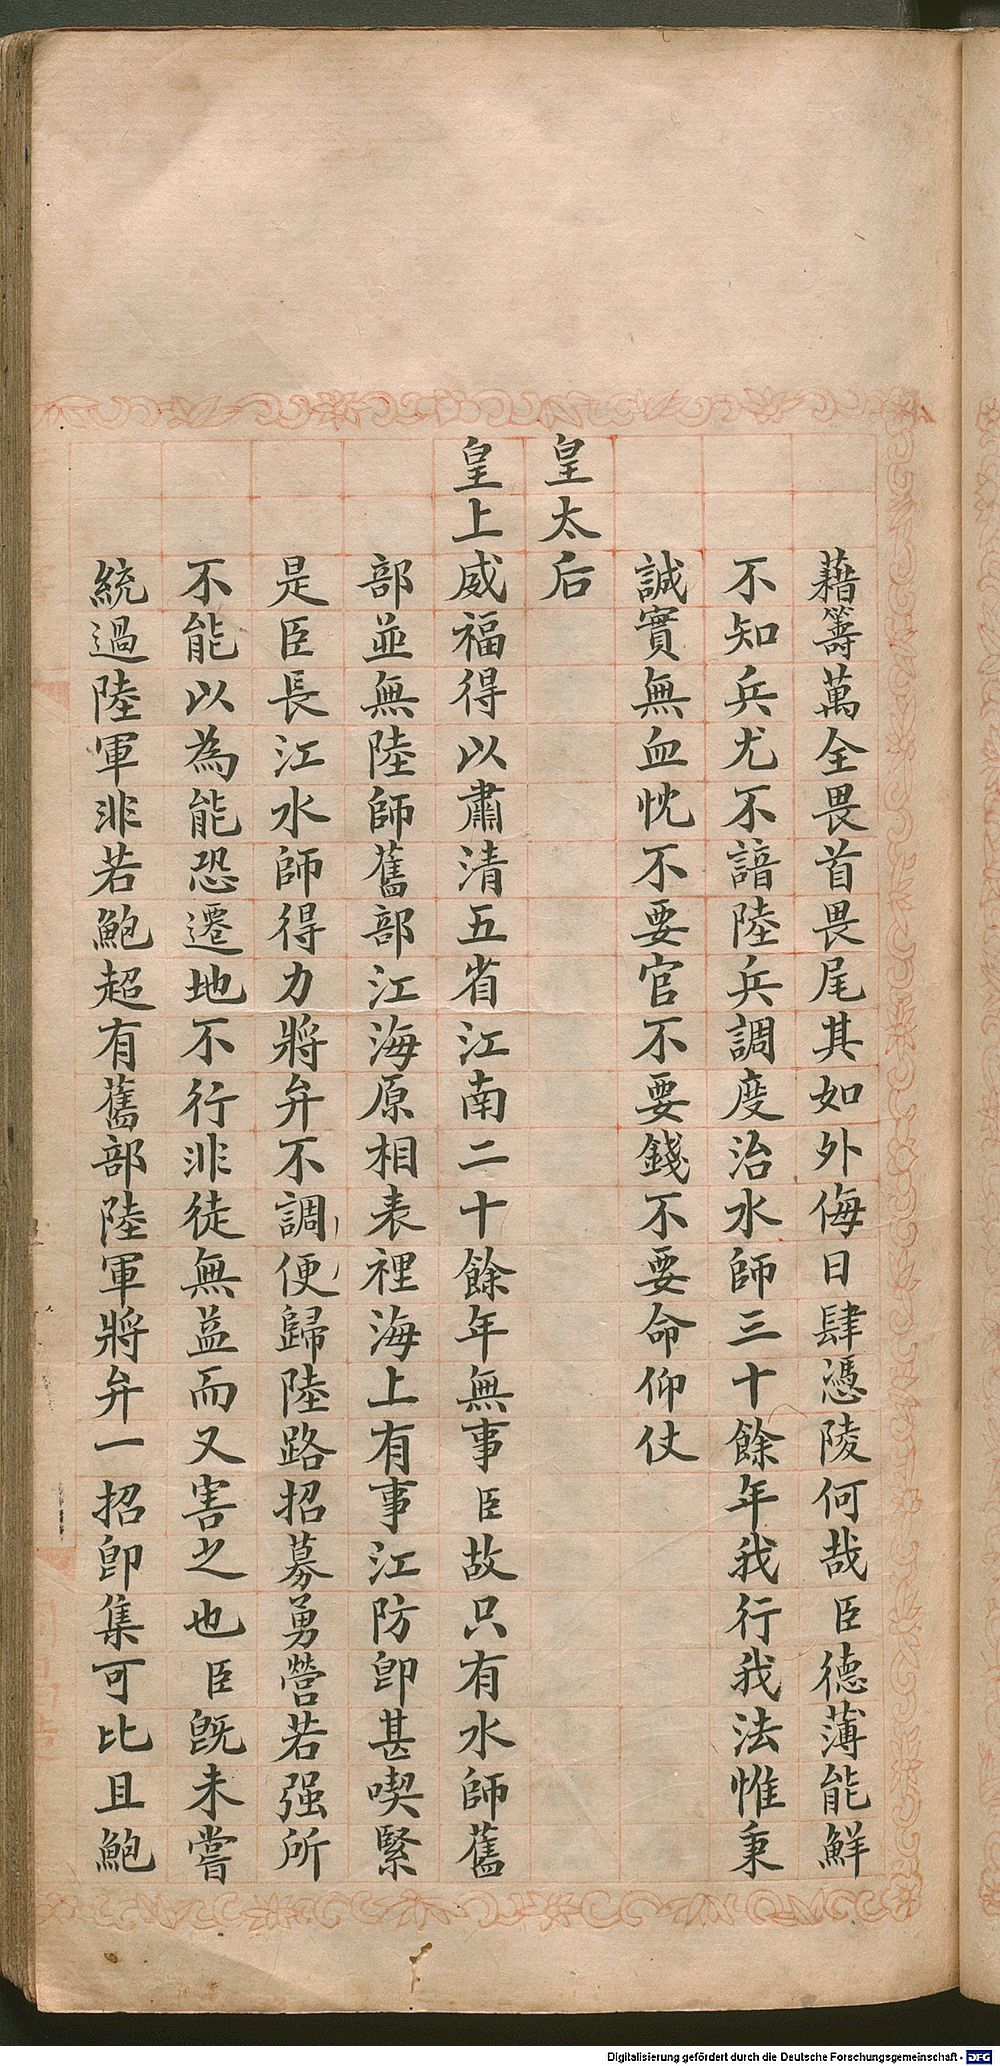 藉籌萬全畏首畏尾其如外侮日肆憑陵何哉臣德薄能鮮
不知兵尤不諳陸兵調度治水師三十餘年我行我法惟秉
誠實無血忱不要官不要錢不要命仰仗
皇太后
皇上威福得以肅清五省江南二十餘年無事臣故只有水師舊
部並無陸師舊部江海原相表裡海上有事江防卽甚喫緊
是臣長江水師得力將弁不調便歸陸路招募勇營若强所
不能以為能恐遷地不行非徒無益而又害之也臣旣未嘗
統過陸軍非若鮑超有舊部陸軍將弁一招卽集可比且鮑
Digitalisierung gefördert durch die Deutsche Forschungsgemeinschaft - DFG